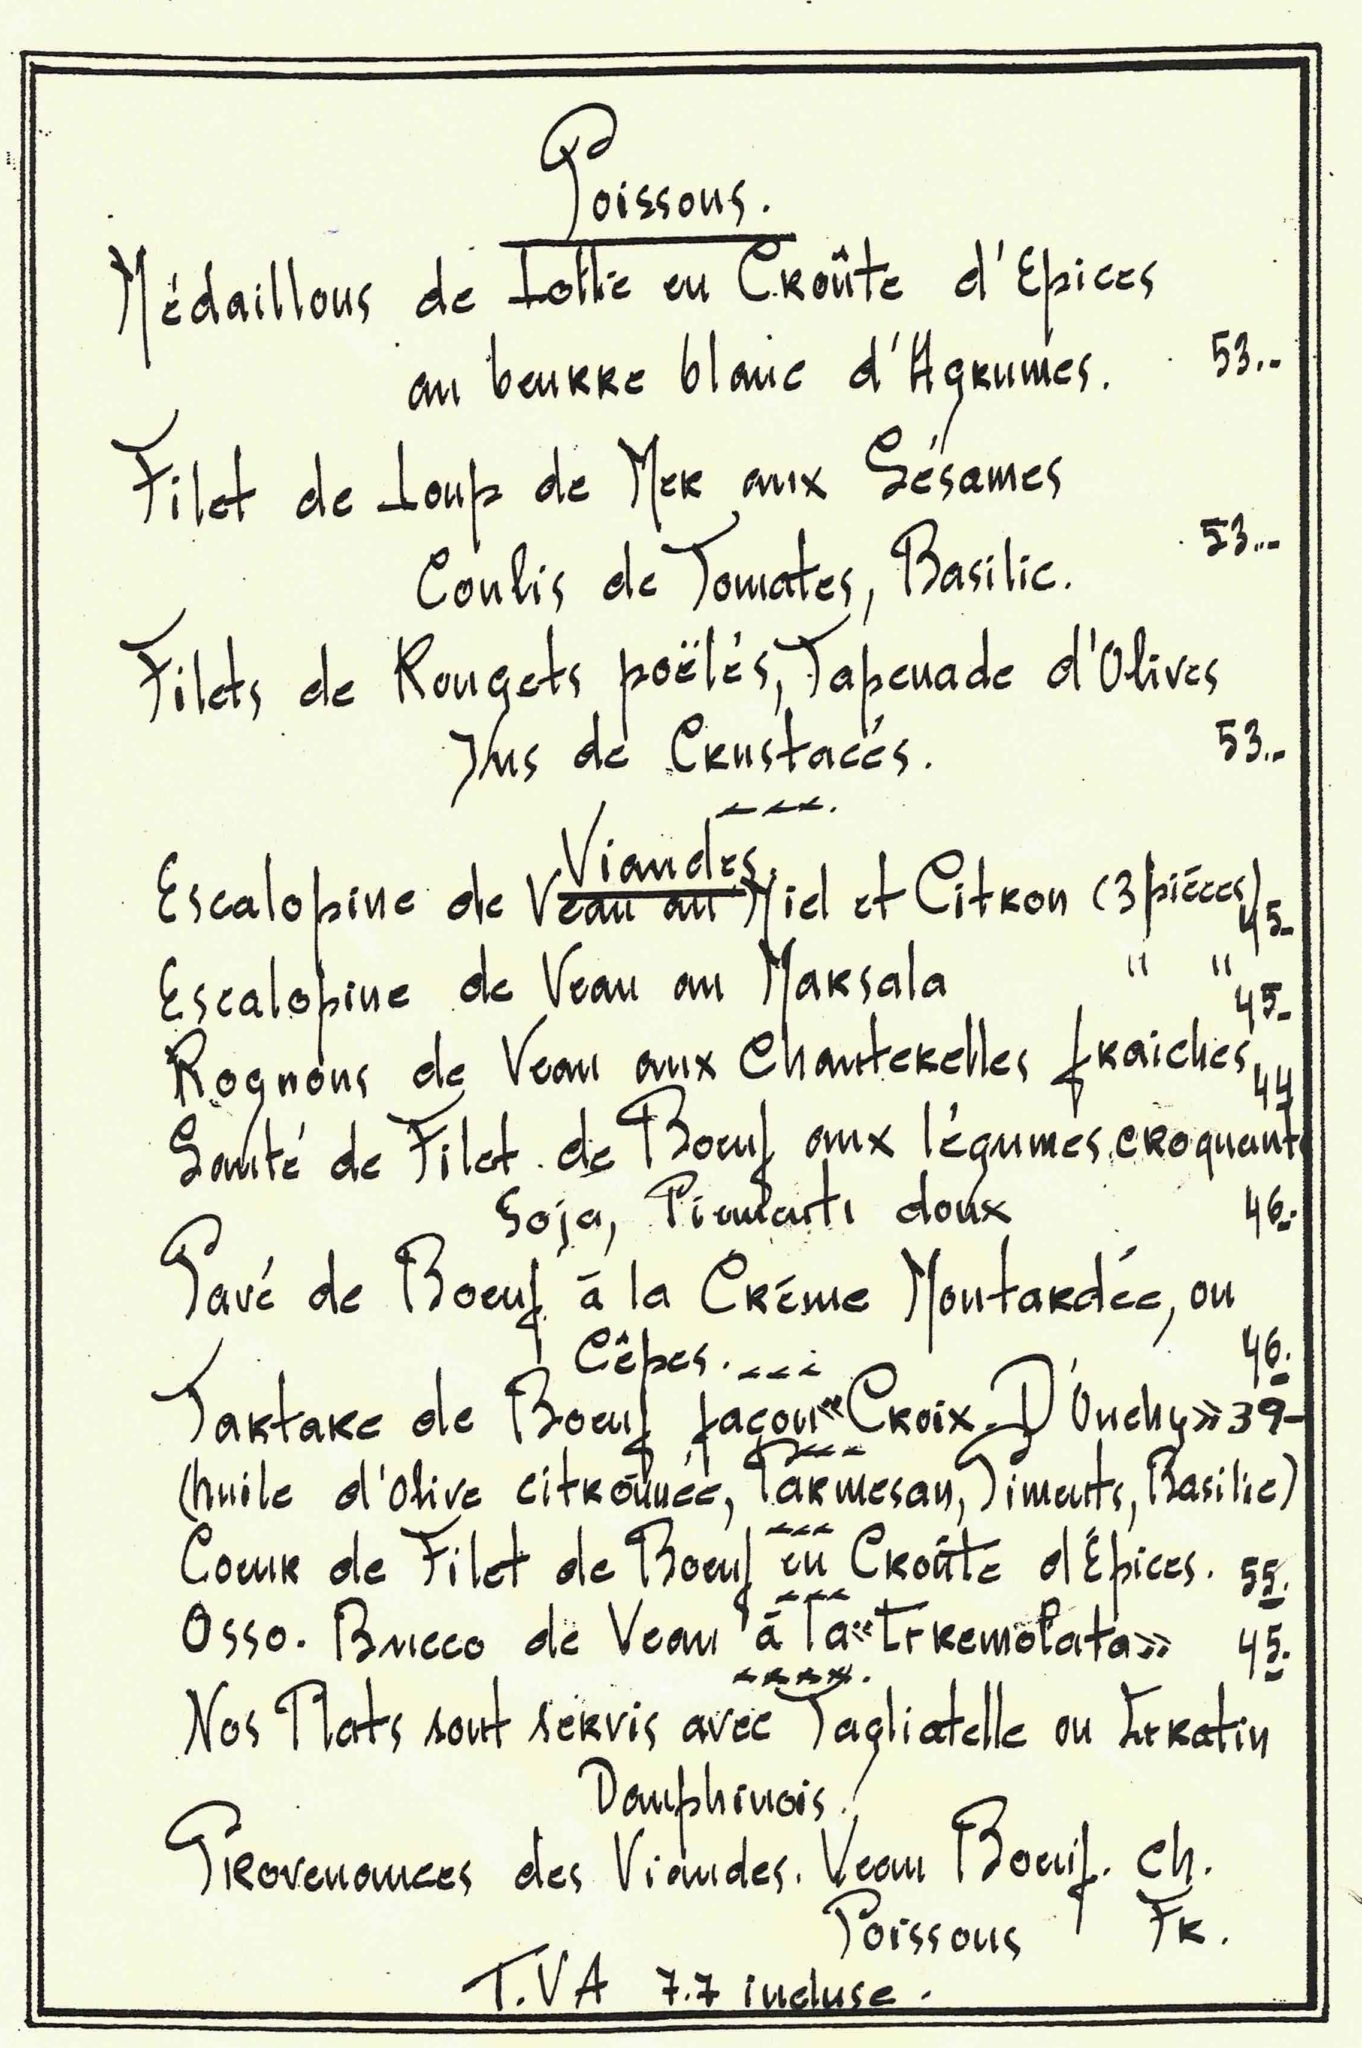 Poissons.
Médaillons de Lotte en Croûte d'Epices
au beurre blanc d'Agrumes. 53.-
Filet de Loup de Mer aux Sésames
53.-
Coulis de Tomates, Basilic.
Filets de Rougets poëlés, Tapenade d'Olives
Jus de Crustacés. 53.-
Viandes.
Escalopine de Veau au Miel et Citron (3 pièces) 45-
Escalopine de Veau au Marsala " " 45-
Rognons de Veau aux Chanterelles fraiches 44
Sauté de Filet de Boeuf aux légumes croquants
Soja, Piments doux 46.-
Pavé de Boeuf à la Crème Moutardée, ou
Cêpes. 46.
Tartare de Boeuf façon «Croix D'Ouchy» 39-
(huile d'olive citronnée, Parmesan, Piments, Basilic)
Coeur de Filet de Boeuf en Croûte d'Épices. 55.
Osso. Bucco de Veau à la «Gremolata» 45.
Nos Plats sont servis avec Tagliatelle ou Gratin
Dauphinois.
Provenances des Viandes. Veau Boeuf. Ch.
Poissons Fr.
T.VA 7.7 incluse.